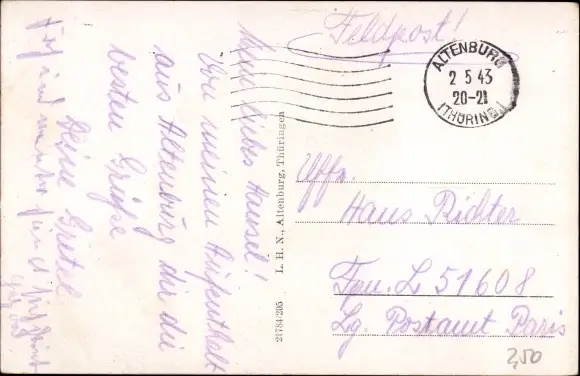 Feldpost!
ALTENBURG
2 5 43
20-21
(THÜRING.)
Mein liebes Hansel!
Von meinen Aufenthalt
aus Altenburg dir die
besten Grüße
Deine Gretel
L. H. N., Altenburg, Thüringen
21784/205
Uffz.
Hans Richter
Fpn. L 51608
Lg. Postamt Paris
2,50